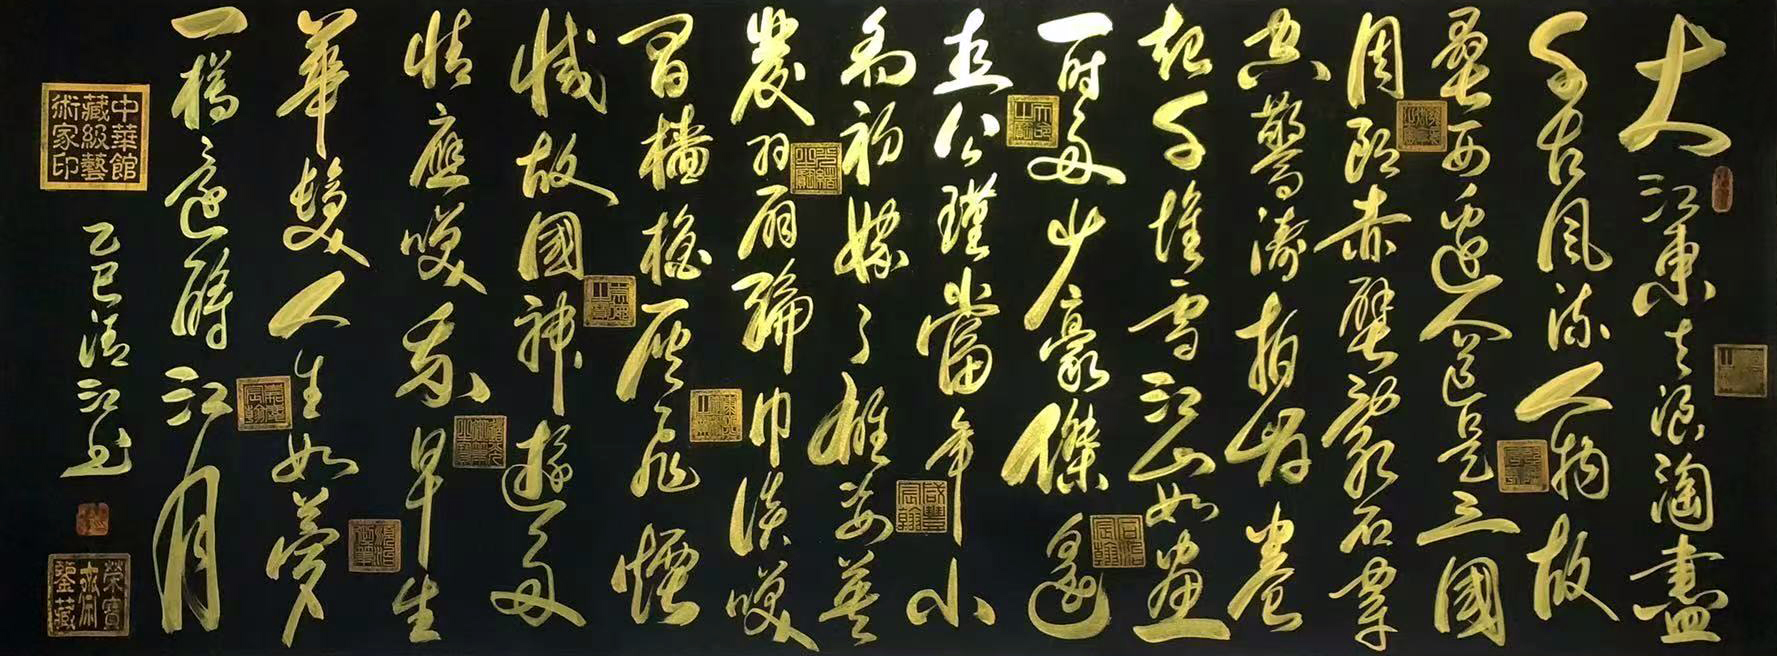 大江東去浪淘盡
千古風流人物故
壘西邊人道是三國
周郎赤壁亂石穿
空驚濤拍岸卷
起千堆雪江山如畫
一時多少豪傑遙
想公瑾當年小
喬初嫁了雄姿英
發羽扇綸巾談咲
間檣櫓灰飛煙
滅故國神遊多
情應咲我早生
華髮人生如夢
一樽還酹江月
乙巳清江書
中華館藏級藝術家印
榮寶齋鑒藏
咸豐宸翰